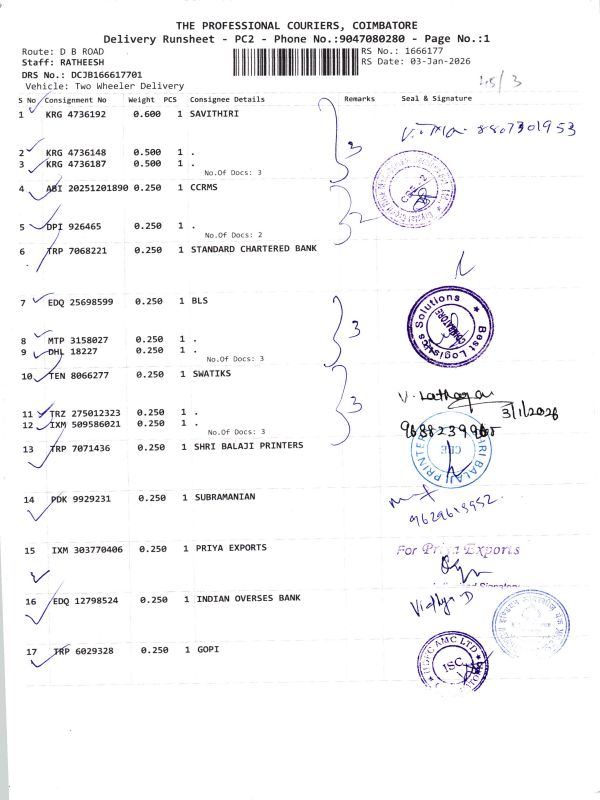 THE PROFESSIONAL COURIERS, COIMBATORE
Delivery Runsheet - PC2 - Phone No.:9047080280 - Page No.:1
Route: D B ROAD
RS No.: 1666177
Staff: RATHEESH
RS Date: 03-Jan-2026
DRS No.: DCJB166617701
Vehicle: Two Wheeler Delivery
S No Consignment No Weight PCS Consignee Details Remarks Seal & Signature
1 KRG 4736192 0.600 1 SAVITHIRI
8807301953
2 KRG 4736148 0.500 1 .
3
3 KRG 4736187 0.500 1 .
No.Of Docs: 3
4 ABI 20251201890 0.250 1 CCRMS
2
5 DPI 926465 0.250 1 .
No.Of Docs: 2
6 TRP 7068221 0.250 1 STANDARD CHARTERED BANK
7 EDQ 25698599 0.250 1 BLS
Best Logistics Solutions
COIMBATORE
3
8 MTP 3158027 0.250 1 .
9 DHL 18227 0.250 1 .
No.Of Docs: 3
10 TEN 8066277 0.250 1 SWATIKS
3
3/1/2026
11 TRZ 275012323 0.250 1 .
12 IXM 509586021 0.250 1 .
No.Of Docs: 3
13 TRP 7071436 0.250 1 SHRI BALAJI PRINTERS
CBE
14 PDK 9929231 0.250 1 SUBRAMANIAN
15 IXM 303770406 0.250 1 PRIYA EXPORTS
For Priya Exports
16 EDQ 12798524 0.250 1 INDIAN OVERSES BANK
Vidhya D
17 TRP 6029328 0.250 1 GOPI
HDFC AMC LTD
ISC